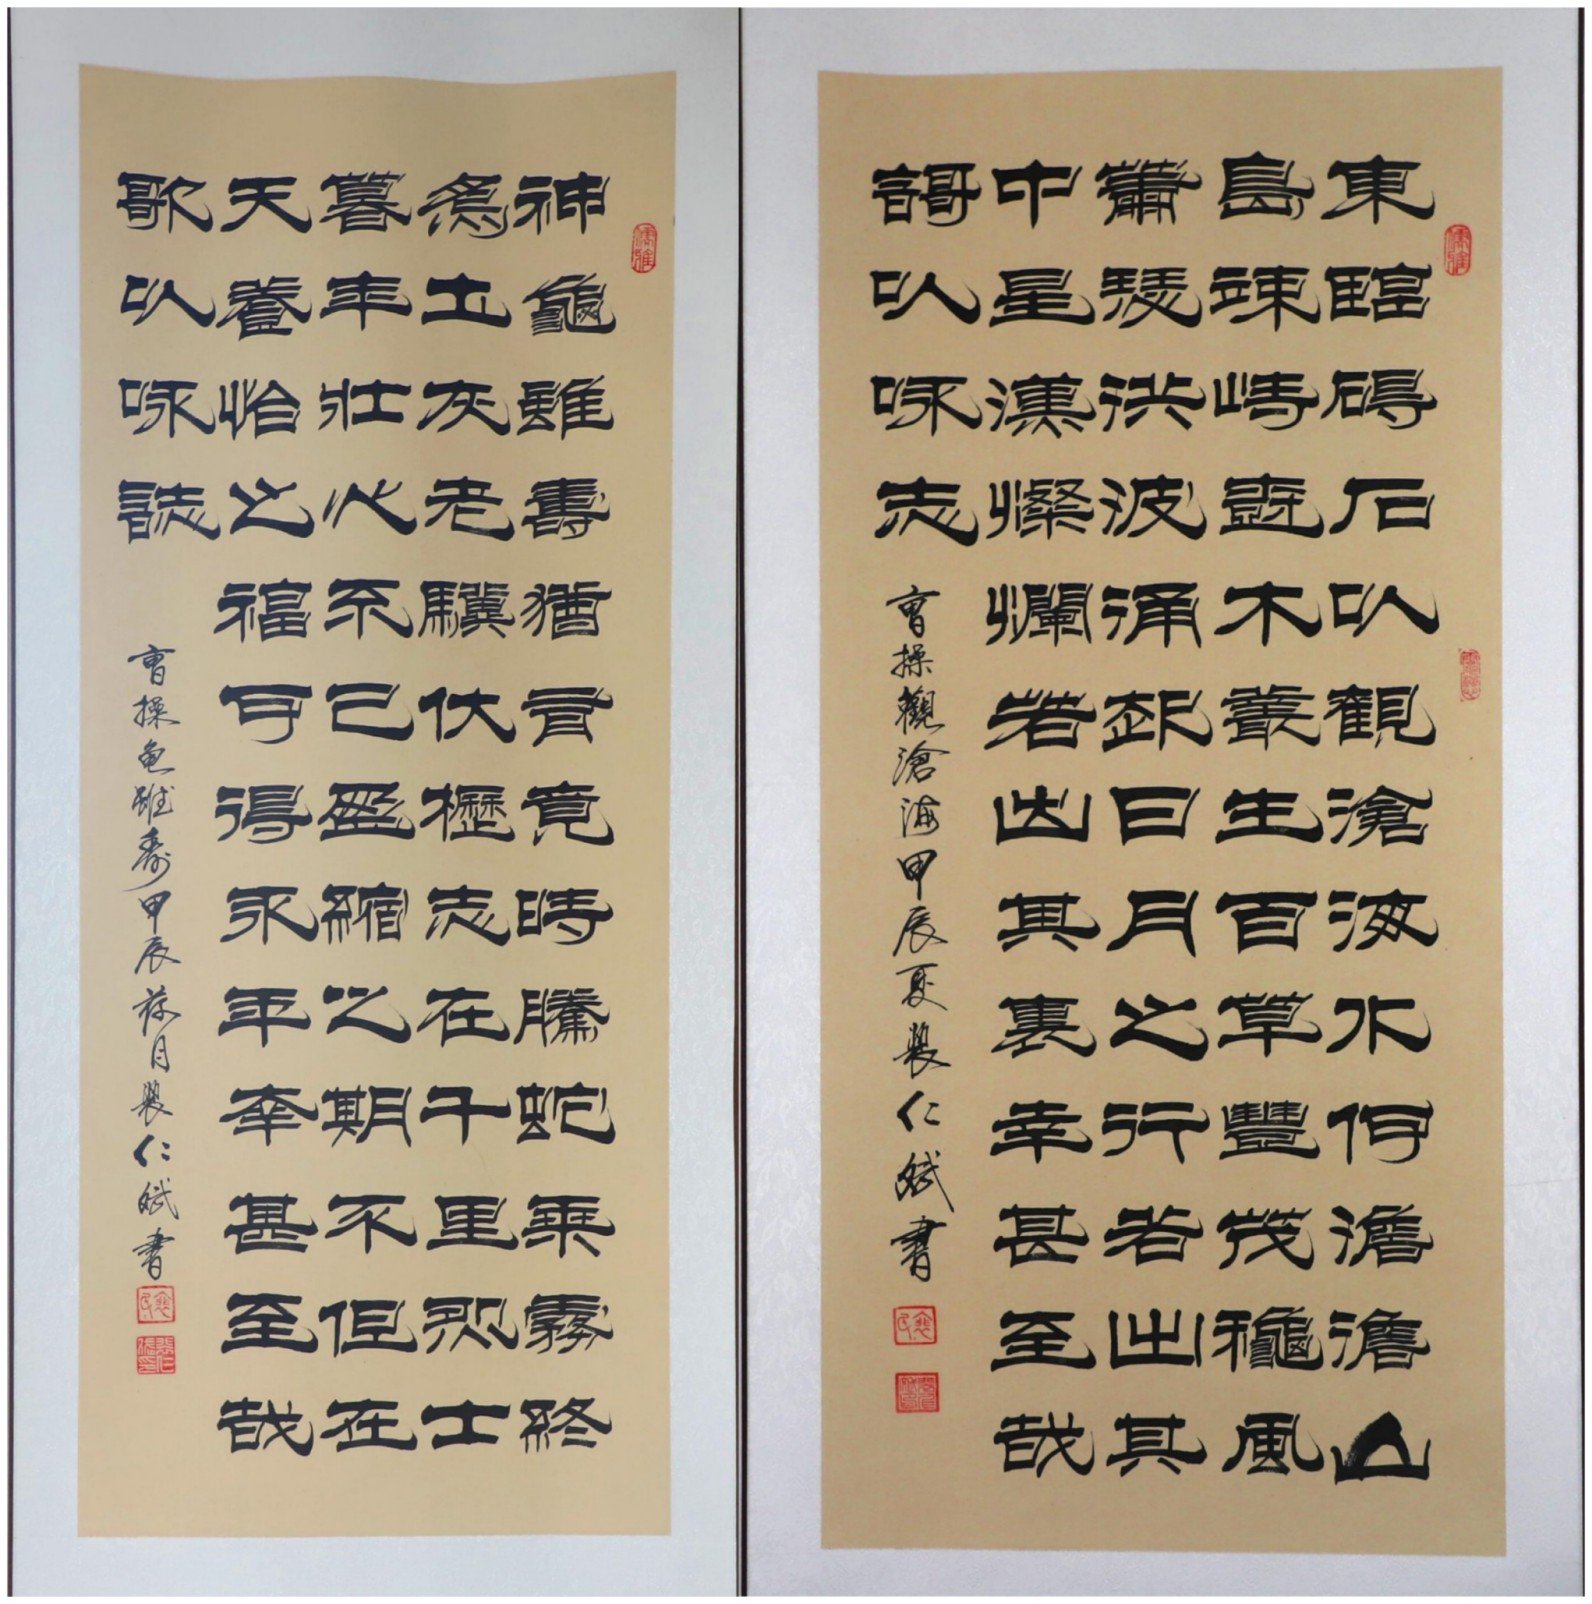 東臨碣石以觀滄海水何澹澹山
島竦峙樹木叢生百草豐茂龝風
蕭瑟洪波涌起日月之行若出其
中星漢燦爛若出其裏幸甚至哉
謌以咏志
曹操觀滄海甲辰夏裴仁斌書
神龜雖壽猶有竟時騰蛇乘霧終
為土灰老驥伏櫪志在千里烈士
暮年壯心不已盈縮之期不但在
天養怡之福可得永年幸甚至哉
歌以咏誌
曹操龟雖壽甲辰荷月裴仁斌書